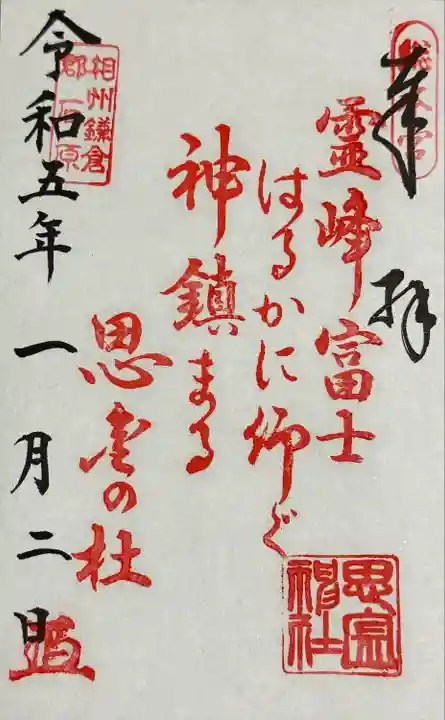 奉拝
霊峰富士
はるかに仰ぐ
神鎮まる
思金の杜
令和五年一月二日
相州鎌倉
郡
原
思金
神社